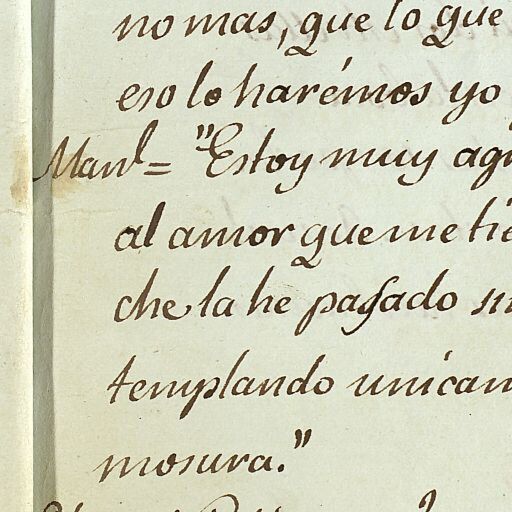 no mas, que lo que
eso lo harémos yo
Man.l = "Estoy muy agr
al amor que me tie
che la he pasado sin
templando unicam
mosura."